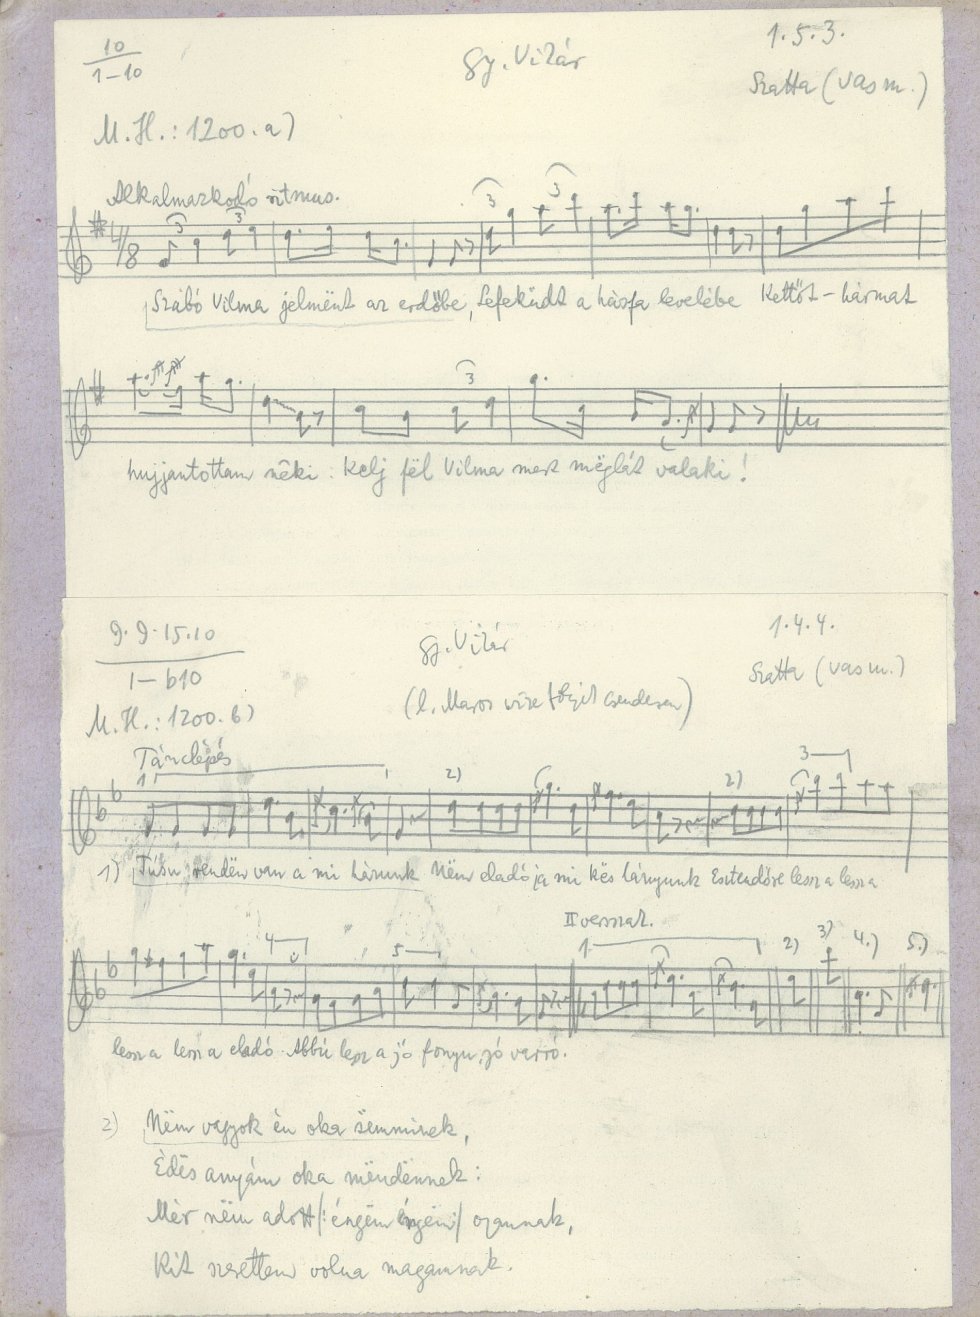 10
1–10
gy. Vilár
1.5.3.
Szatta (Vas m.)
M.H.: 1200. a)
Alkalmazkodó ritmus.
3 3 3 3
4/8
Szàbó Vilma jelmënt az erdőbe, Lefeküdt a hàzfa levelébe Kettőt – hármat
3
hujjantottam nêki. Kelj fël Vilma mert mëglát valaki!
9. 9. 15. 10
1 – b10
gy. Vilár
1.4.4.
Szatta (Vas m.)
(l. Maros vize folyik csendesen)
M.H.: 1200. b)
Tánclépés
1 2) 2) 3
1) rendën van a mi hàzunk Nëm eladó ja mi kës lányunk Esztendőre lessz a lessz a
II versszak.
4 5 1 2) 3) 4.) 5.)
lessz a lessz a eladó Abbú lessz a jó fonyu, jó varró.
2) Nëm vagyok én oka sëmminek,
Édës anyám oka mëndënnek:
Mér nëm adott /: éngëm éngëm :/ azannak,
Kit szerettem volna magamnak.